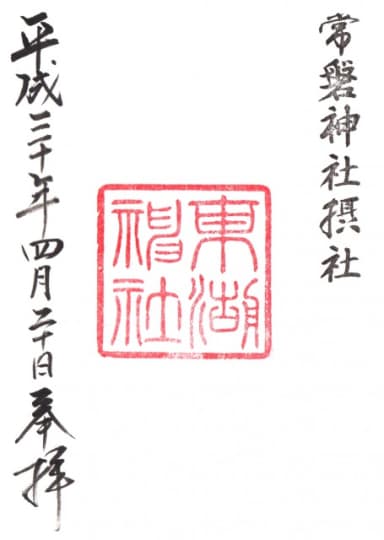 常磐神社摂社
東湖
神社
平成三十年四月二十日奉拝